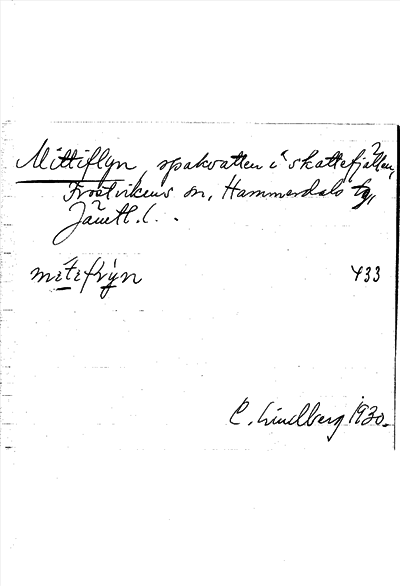 Mittiflyn, spakvatten i skattefjällen,
Frostvikens sn, Hammerdals tg,
Jämtl. l.
mitifrýn 433
C. Lindberg 1930.